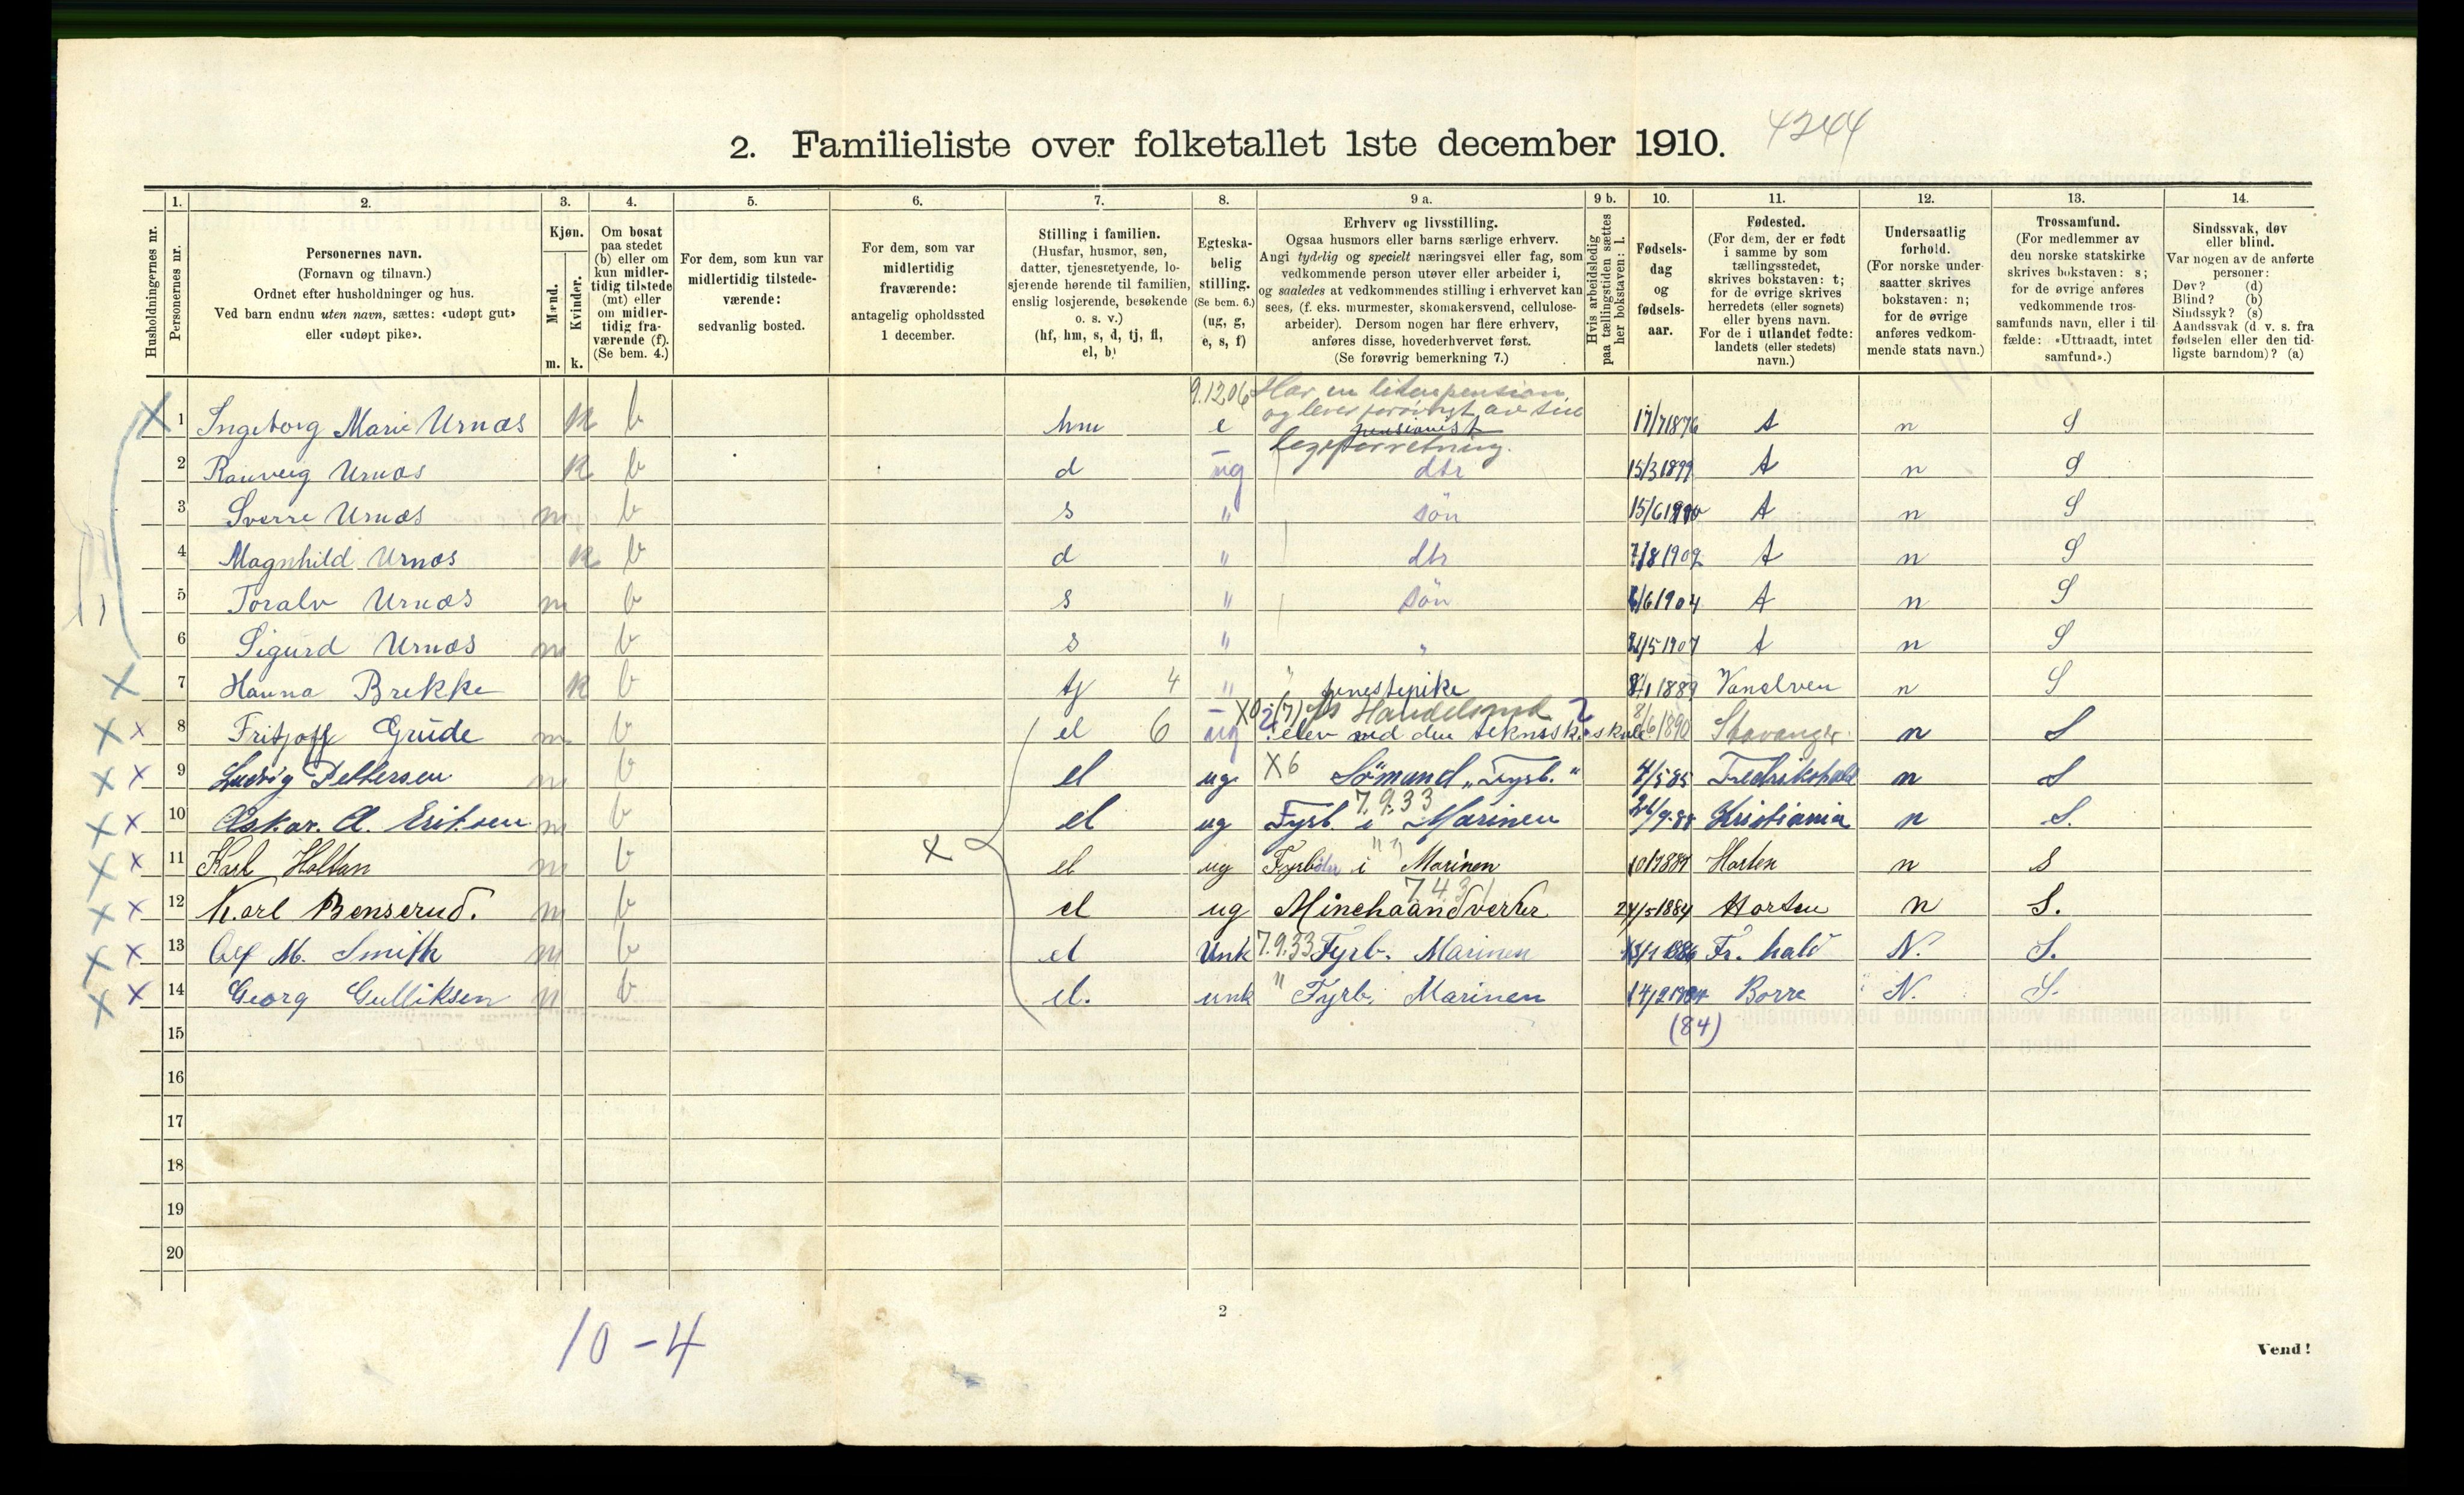 2. Familieliste over folketallet 1ste december 1910. 4244
Husholdningernes nr.
Personernes nr.
1. 2. 3. 4. 5. 6. 7. 8. 9 a. 9 b. 10. 11. 12. 13. 14.
Personernes navn.
(Fornavn og tilnavn.)
Ordnet efter husholdninger og hus.
Ved barn endnu uten navn, sættes: «udøpt gut»
eller «udøpt pike».
Kjøn.
Mænd.
Kvinder.
m. k.
Om bosat
paa stedet
(b) eller om
kun midler-
tidig tilstede
(mt) eller
om midler-
tidig fra-
værende (f).
(Se bem. 4.)
For dem, som kun var
midlertidig tilstede-
værende:
sedvanlig bosted.
For dem, som var
midlertidig
fraværende:
antagelig opholdssted
1 december.
Stilling i familien.
(Husfar, husmor, søn,
datter, tjenestetyende, lo-
sjerende hørende til familien,
enslig losjerende, besøkende
o. s. v.)
(hf, hm, s, d, tj, fl,
el, b)
Egteska-
belig
stilling.
(Se bem. 6.)
(ug, g,
e, s, f)
Erhverv og livsstilling.
Ogsaa husmors eller barns særlige erhverv.
Angi tydelig og specielt næringsvei eller fag, som
vedkommende person utøver eller arbeider i,
og saaledes at vedkommendes stilling i erhvervet kan
sees, (f. eks. murmester, skomakersvend, cellulose-
arbeider). Dersom nogen har flere erhverv,
anføres disse, hovederhvervet først.
(Se forøvrig bemerkning 7.)
Hvis arbeidsledig
paa tællingstiden sættes
her bokstaven: l.
Fødsels-
dag
og
fødsels-
aar.
Fødested.
(For dem, der er født
i samme by som
tællingsstedet,
skrives bokstaven: t;
for de øvrige skrives
herredets (eller sognets)
eller byens navn.
For de i utlandet fødte:
landets (eller stedets)
navn.)
Undersaatlig
forhold.
(For norske under-
saatter skrives
bokstaven: n;
for de øvrige
anføres vedkom-
mende stats navn.)
Trossamfund.
(For medlemmer av
den norske statskirke
skrives bokstaven: s;
for de øvrige anføres
vedkommende tros-
samfunds navn, eller i til-
fælde: «Uttraadt, intet
samfund».)
Sindssvak, døv
eller blind.
Var nogen av de anførte
personer:
Døv? (d)
Blind? (b)
Sindssyk? (s)
Aandssvak (d. v. s. fra
fødselen eller den tid-
ligste barndom)? (a)
9.12.06 Har en liten pension
og lever forøvrigt av sin
X 1 Ingeborg Marie Urnæs k b hm e pensionist 17/7 1876 t n S
logiforretning.
2 Ranveig Urnæs k b d ug dtr 15/3 1899 t n S
3 Sverre Urnæs m b s " søn 15/6 1900 t n S
4 Magnhild Urnæs k b d " dtr 7/8 1902 t n S
5 Toralv Urnæs m b s " søn /6 1904 t n S
6 Sigurd Urnæs m b s " " /5 1907 t n S
X 7 Hanna Brekke k b tj 4 " tjenestepike /1 1889 Vanelven n S
X X 8 Fritjoff Grude m b el 6 ug elev ved den tekniske skole 8/6 1890 Stavanger n S
X X 9 Ludvig Pettersen m b el ug X6 Sömand „Fyrb." 4/5 85 Fredrikshald n S
7.9.33
X X 10 Oskar. A. Eriksen m b el ug Fyrb. i Marinen 26/9-88 Kristiania n S.
" "
X X 11 Karl Holtan m b X el ug Fyrböter i Marinen Horten n s
7.4.31
X X 12 Karl Benserud. m b el ug Minehaandverker 24/5 1884 Horten n S.
X X 13 Alf M. Smith m b el Unk 7.9.33 Fyrb. Marinen 1886 Fr. hald N. S.
X X 14 Georg Gulliksen m b el. unk " Fyrb. Marinen 14/2 Borre N. S.
15 (84)
16
17
18
19
20
2
10-4
Vend!